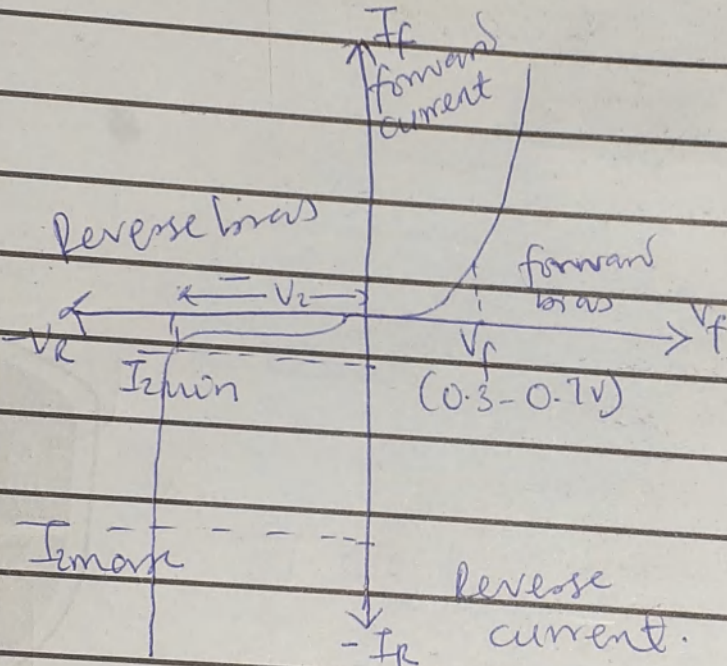 If
forward
current
Reverse bias
Vz
forward
bias
Vf
-VR
Izmin
Vf
(0.3-0.7V)
Izmax
Reverse
current.
-IR